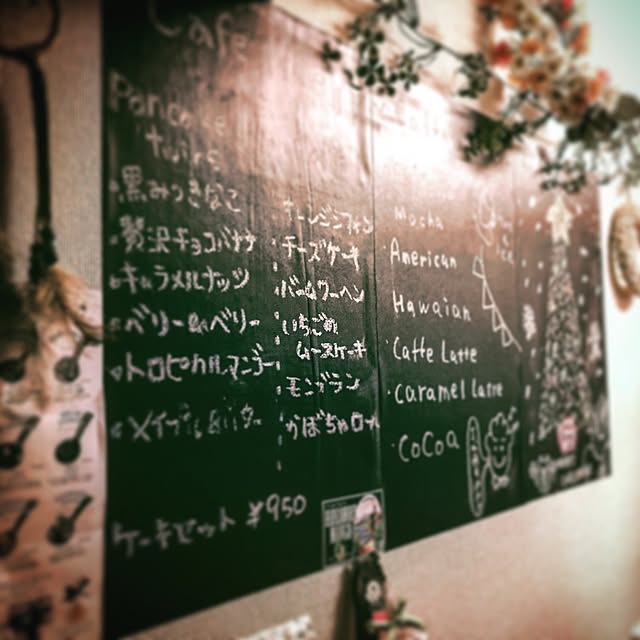 Cafe
Pancake
twins
・黒みつきなこ
・贅沢チョコバナナ
・キャラメルナッツ
・ベリー&ベリー
・トロピカルマンゴー
・メイプル&バター
ケーキセット ¥950
チーズケーキ
バームクーヘン
いちごの
ムースケーキ
モンブラン
かぼちゃロール
Mocha
・American
Hawaiian
Caffe Latte
・Caramel Latte
・CoCoa